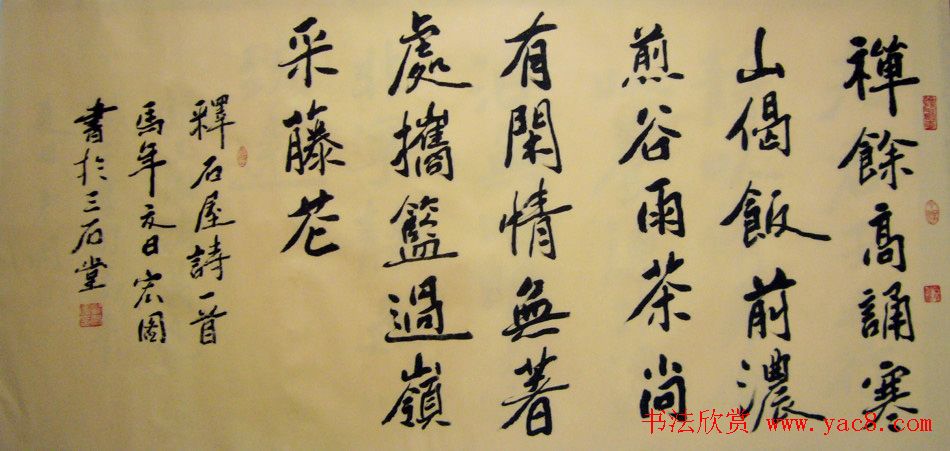 禪餘高誦寒
山偈飯前濃
煎谷雨茶尚
有閑情無著
處攜籃過嶺
采藤花
釋石屋詩一首
馬年夏日宏圖
書於三石堂
书法欣赏 www.yac8.com